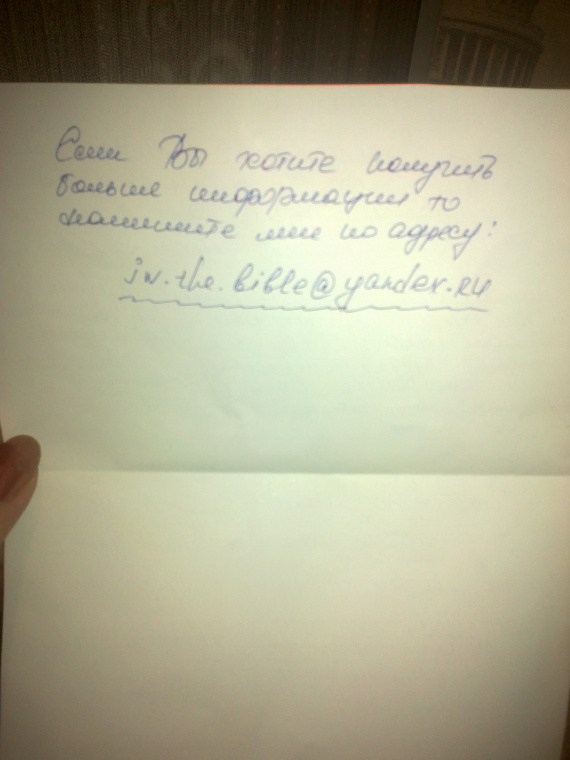 Если Вы хотите получить
больше информации то
напишите мне по адресу:
in.the.bible@yandex.ru